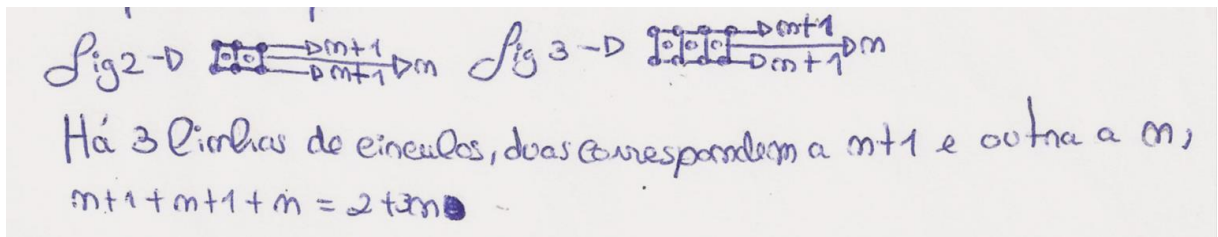 fig 2 → n+1 n+1 n fig 3 → n+1 n+1 n
Há 3 linhas de circulos, duas correspondem a n+1 e outra a n,
n+1+n+1+n = 2+3n